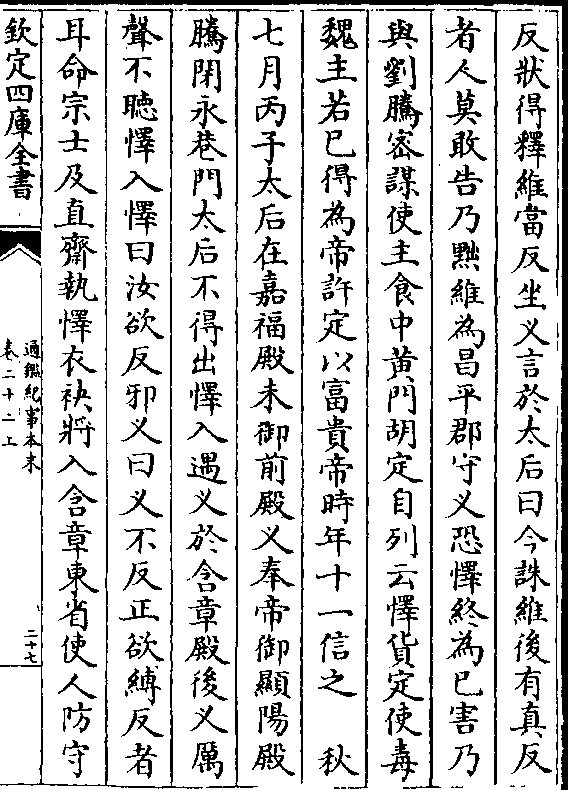 反狀得釋維當反坐义言於太后曰今誅維後有真反
者人莫敢告乃黜維為昌平郡守义恐懌終為巳害乃
與劉騰密謀使主食中黄門胡定自列云懌貨定使毒
魏主若巳得為帝許定以富貴帝時年十一信之　秋
七月丙子太后在嘉福殿未御前殿义奉帝御顯陽殿
騰閉永巷門太后不得出懌入遇义於含章殿後义厲
聲不聽懌入懌曰汝欲反邪义曰义不反正欲縛反者
耳命宗士及直齋執懌衣袂將入含章東省使人防守
欽定四庫全書
通鑑紀事本末
卷二十二上
二十七